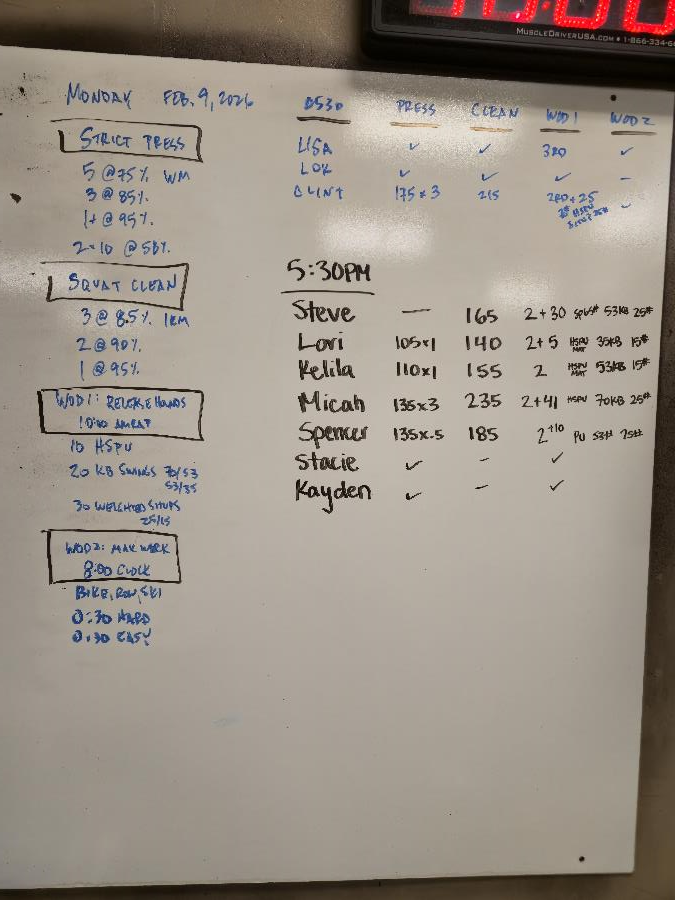 10:00
MUSCLEDRIVERUSA.COM • 1-866-334-6
MONDAY FEB. 9, 2026
STRICT PRESS
5 @ 75% WM
3 @ 85%
1+ @ 95%
2×10 @ 50%
SQUAT CLEAN
3 @ 85% 1RM
2 @ 90%
1 @ 95%
WOD1: RELEASE HANDS
10:00 AMRAP
10 HSPU
20 KB SWINGS 70/53
53/35
30 WEIGHTED SITUPS
25/15
WOD2: MAX WORK
8:00 CLOCK
BIKE, ROW, SKI
0:30 HARD
0:30 EASY
0530 PRESS CLEAN WOD1 WOD2
LISA ✓ ✓ 3RD ✓
LOK ✓ ✓ ✓ –
CLINT 175×3 215 2RD+25 ✓
HSPU
5:30PM
Steve — 165 2+30 53KB 25#
Lori 105×1 140 2+5 HSPU MAT 35KB 15#
Kelila 110×1 155 2 HSPU MAT 53KB 15#
Micah 135×3 235 2+41 HSPU 70KB 25#
Spencer 135×.5 185 2+10 PU 53# 25#
Stacie ✓ – ✓
Kayden ✓ – ✓